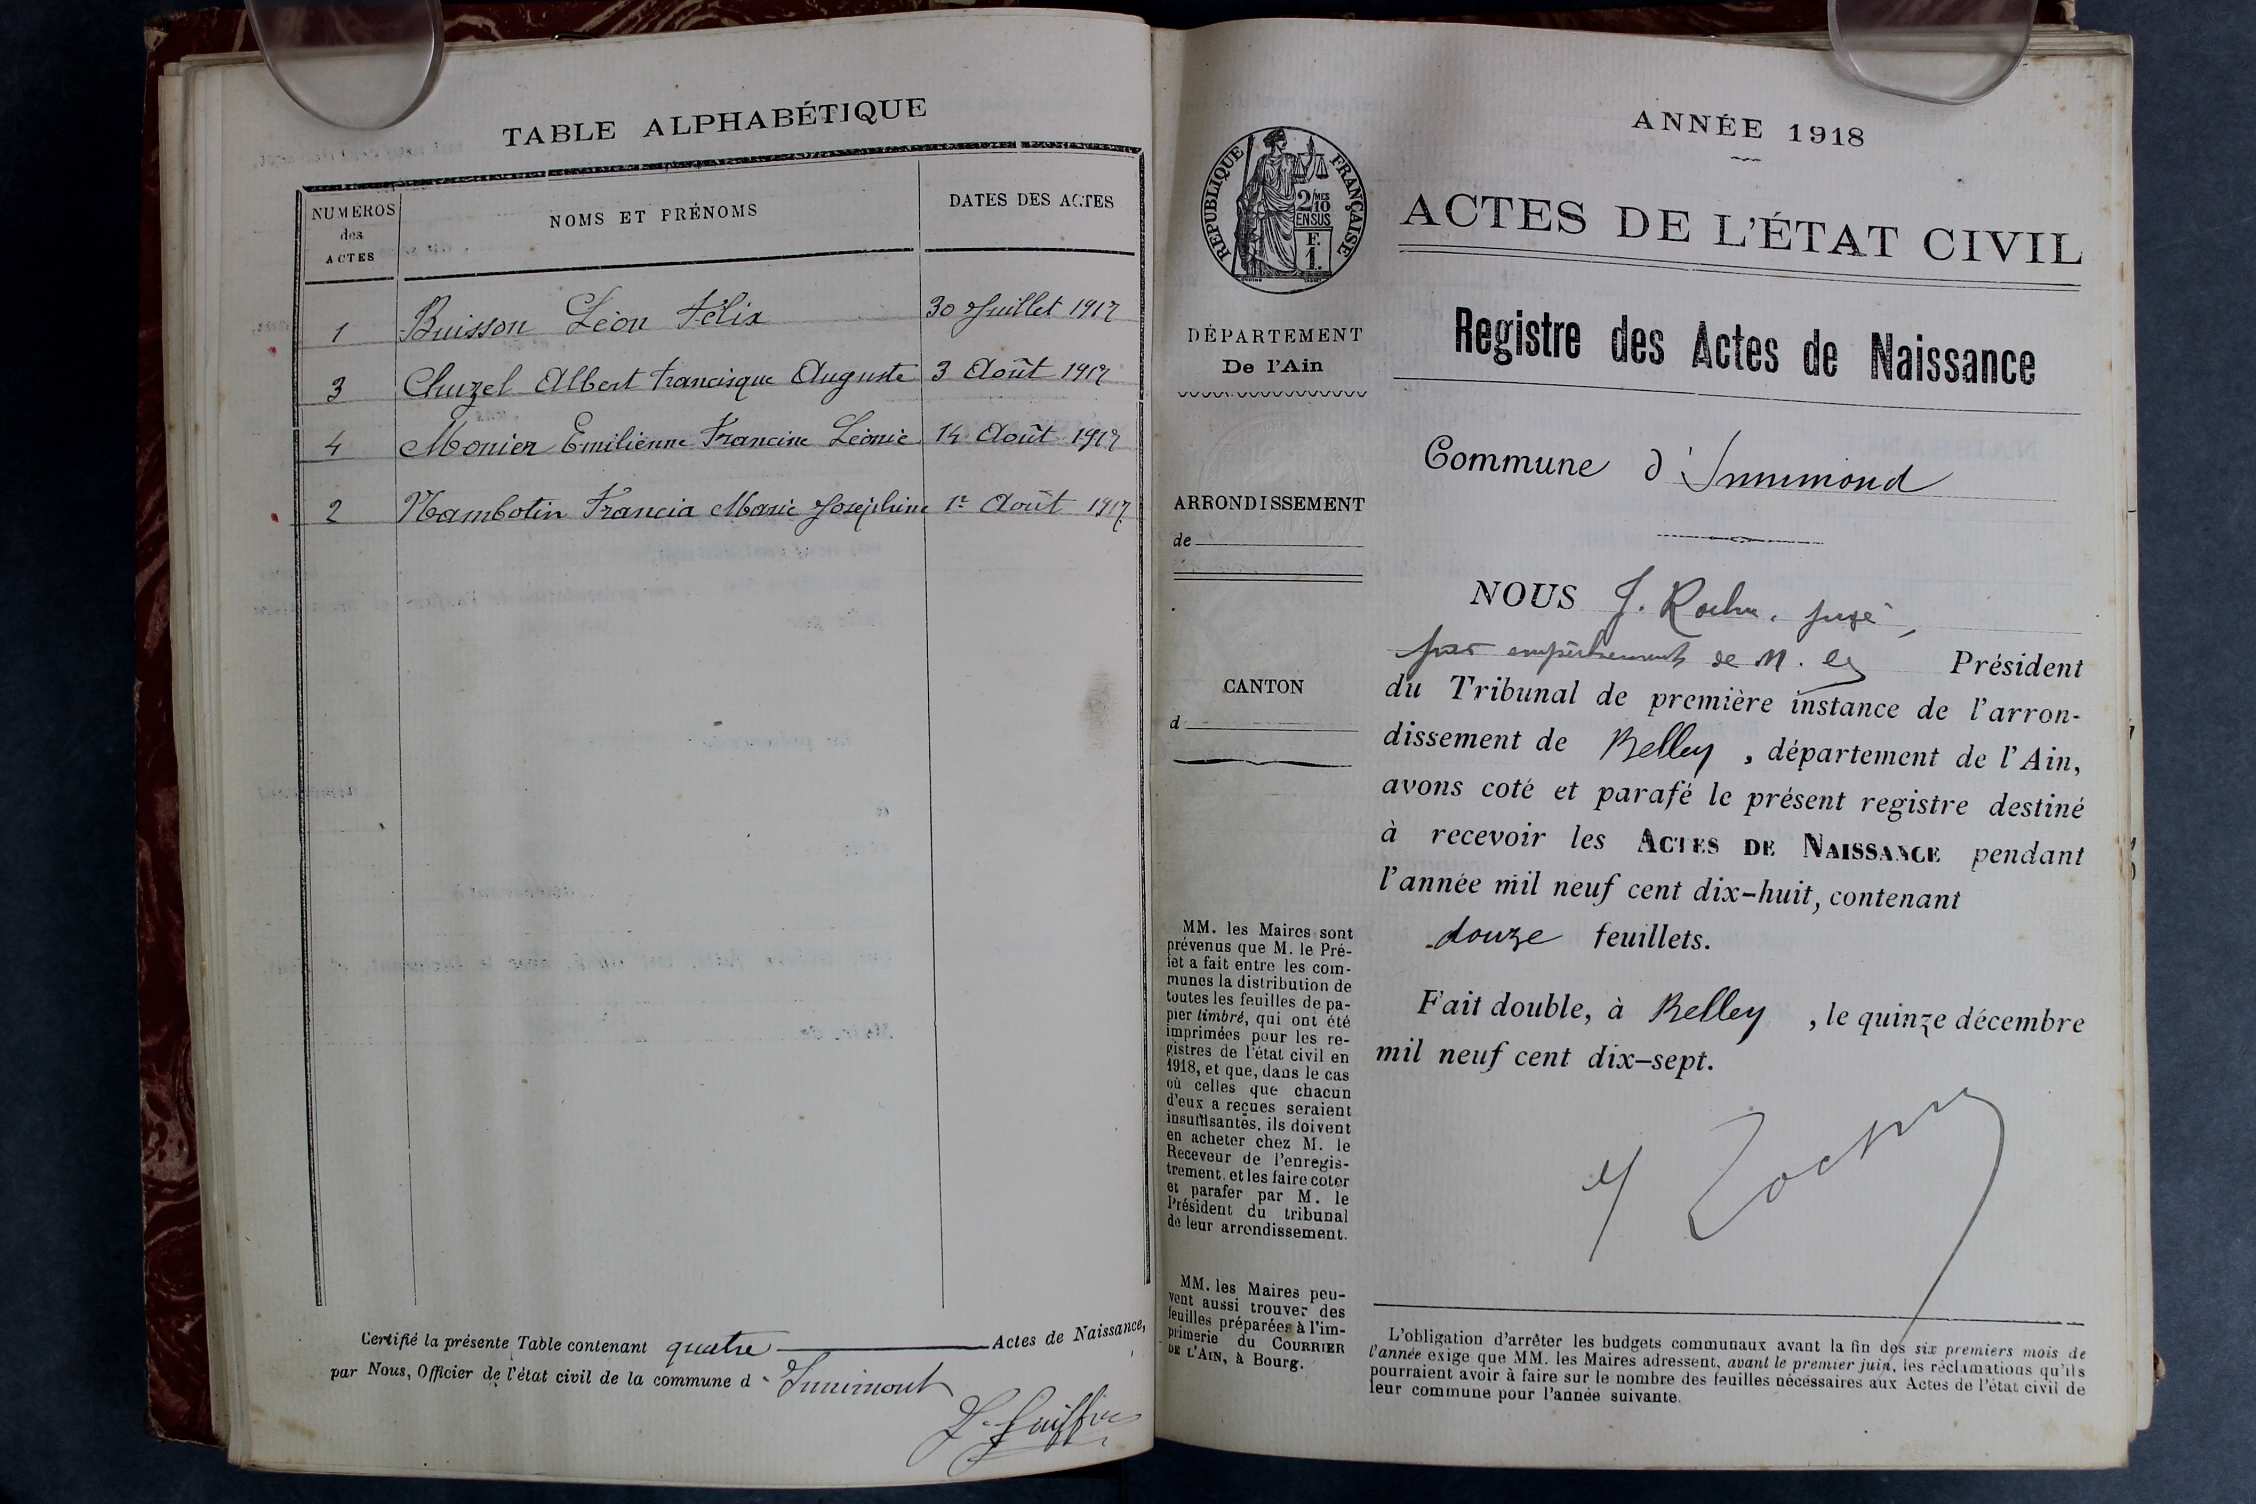 TABLE ALPHABÉTIQUE
NUMÉROS des ACTES
NOMS ET PRÉNOMS
DATES DES ACTES
1 Buisson Léon Félix 30 Juillet 1917
3 Chuzel Albert Francisque Auguste 3 Août 1917
4 Monier Emilienne Francine Léonie 14 Août 1917
2 Nambotin Francia Marie Joséphine 1er Août 1917
Certifié la présente Table contenant quatre Actes de Naissance,
par Nous, Officier de l'état civil de la commune d'Innimont
RÉPUBLIQUE FRANÇAISE
2/10MES
EN SUS
F.
1.
DÉPARTEMENT
De l'Ain
ARRONDISSEMENT
de
CANTON
d
MM. les Maires sont
prévenus que M. le Pré-
fet a fait entre les com-
munes la distribution de
toutes les feuilles de pa-
pier timbré, qui ont été
imprimées pour les re-
gistres de l'état civil en
1918, et que, dans le cas
où celles que chacun
d'eux a reçues seraient
insuffisantes, ils doivent
en acheter chez M. le
Receveur de l'enregis-
trement, et les faire coter
et parafer par M. le
Président du tribunal
de leur arrondissement.
MM. les Maires peu-
vent aussi trouver des
feuilles préparées à l'im-
primerie du COURRIER
DE L'AIN, à Bourg.
ANNÉE 1918
ACTES DE L'ÉTAT CIVIL
Registre des Actes de Naissance
Commune d'Innimond
NOUS J. Roche, juge
par empêchement de M. le Président
du Tribunal de première instance de l'arron-
dissement de Belley, département de l'Ain,
avons coté et parafé le présent registre destiné
à recevoir les ACTES DE NAISSANCE pendant
l'année mil neuf cent dix-huit, contenant
douze feuillets.
Fait double, à Belley, le quinze décembre
mil neuf cent dix-sept.
L'obligation d'arrêter les budgets communaux avant la fin des six premiers mois de
l'année exige que MM. les Maires adressent, avant le premier juin, les réclamations qu'ils
pourraient avoir à faire sur le nombre des feuilles nécessaires aux Actes de l'état civil de
leur commune pour l'année suivante.